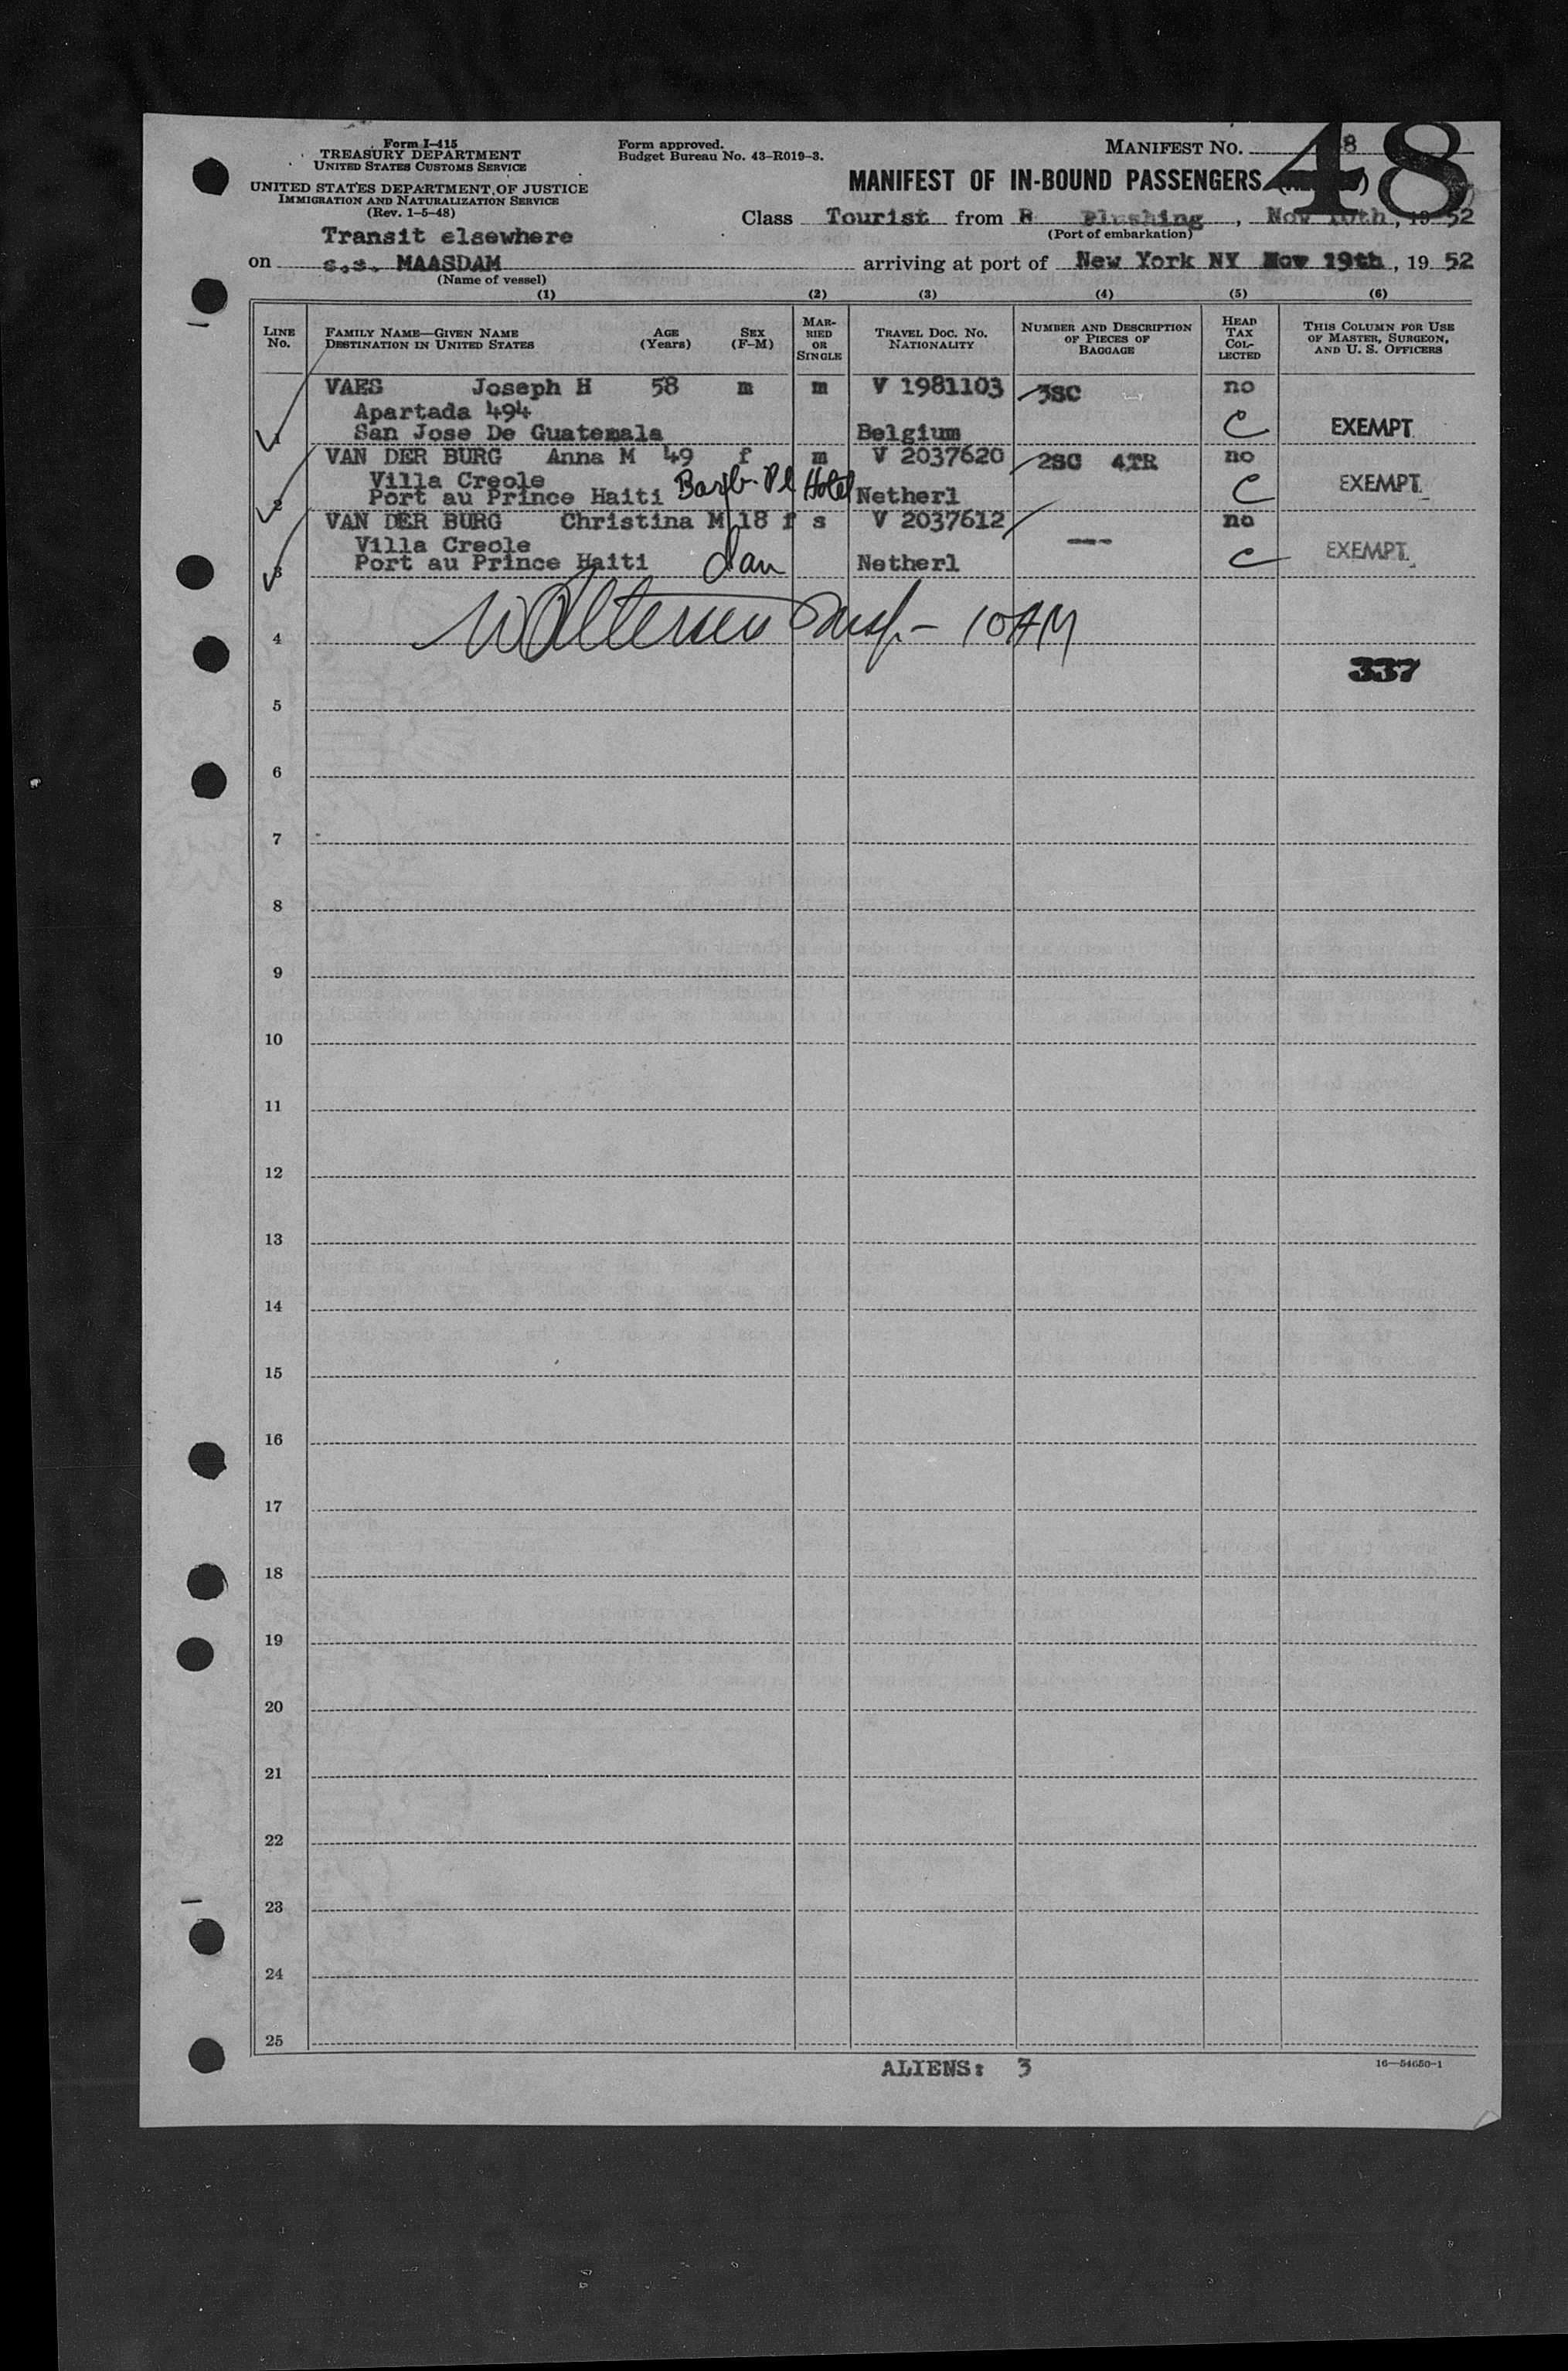 Form I-415
TREASURY DEPARTMENT
UNITED STATES CUSTOMS SERVICE
UNITED STATES DEPARTMENT OF JUSTICE
IMMIGRATION AND NATURALIZATION SERVICE
(Rev. 1-5-48)
Form approved.
Budget Bureau No. 43-R019-3.
MANIFEST NO. 8
48
MANIFEST OF IN-BOUND PASSENGERS
Class Tourist from Flushing, Nov 10th, 1952
(Port of embarkation)
Transit elsewhere
on s.s. MAASDAM arriving at port of New York NY Nov 19th, 19 52
(Name of vessel)
(1) (2) (3) (4) (5) (6)
LINE No. FAMILY NAME—GIVEN NAME DESTINATION IN UNITED STATES AGE (Years) SEX (F-M) MARRIED OR SINGLE TRAVEL DOC. NO. NATIONALITY NUMBER AND DESCRIPTION OF PIECES OF BAGGAGE HEAD TAX COLLECTED THIS COLUMN FOR USE OF MASTER, SURGEON, AND U. S. OFFICERS
VAES Joseph H 58 m m V 1981103 3SC no
Apartada 494 C EXEMPT
1 San Jose De Guatemala Belgium
VAN DER BURG Anna M 49 f m V 2037620 2SC 4TR no
Villa Creole C EXEMPT
2 Port au Prince Haiti Barb. Pl Hotel Netherl
VAN DER BURG Christina M 18 f s V 2037612 no
Villa Creole --- C EXEMPT
3 Port au Prince Haiti dau Netherl
4 Insp- 10AM
337
5
6
7
8
9
10
11
12
13
14
15
16
17
18
19
20
21
22
23
24
25
ALIENS: 3
16—54650-1